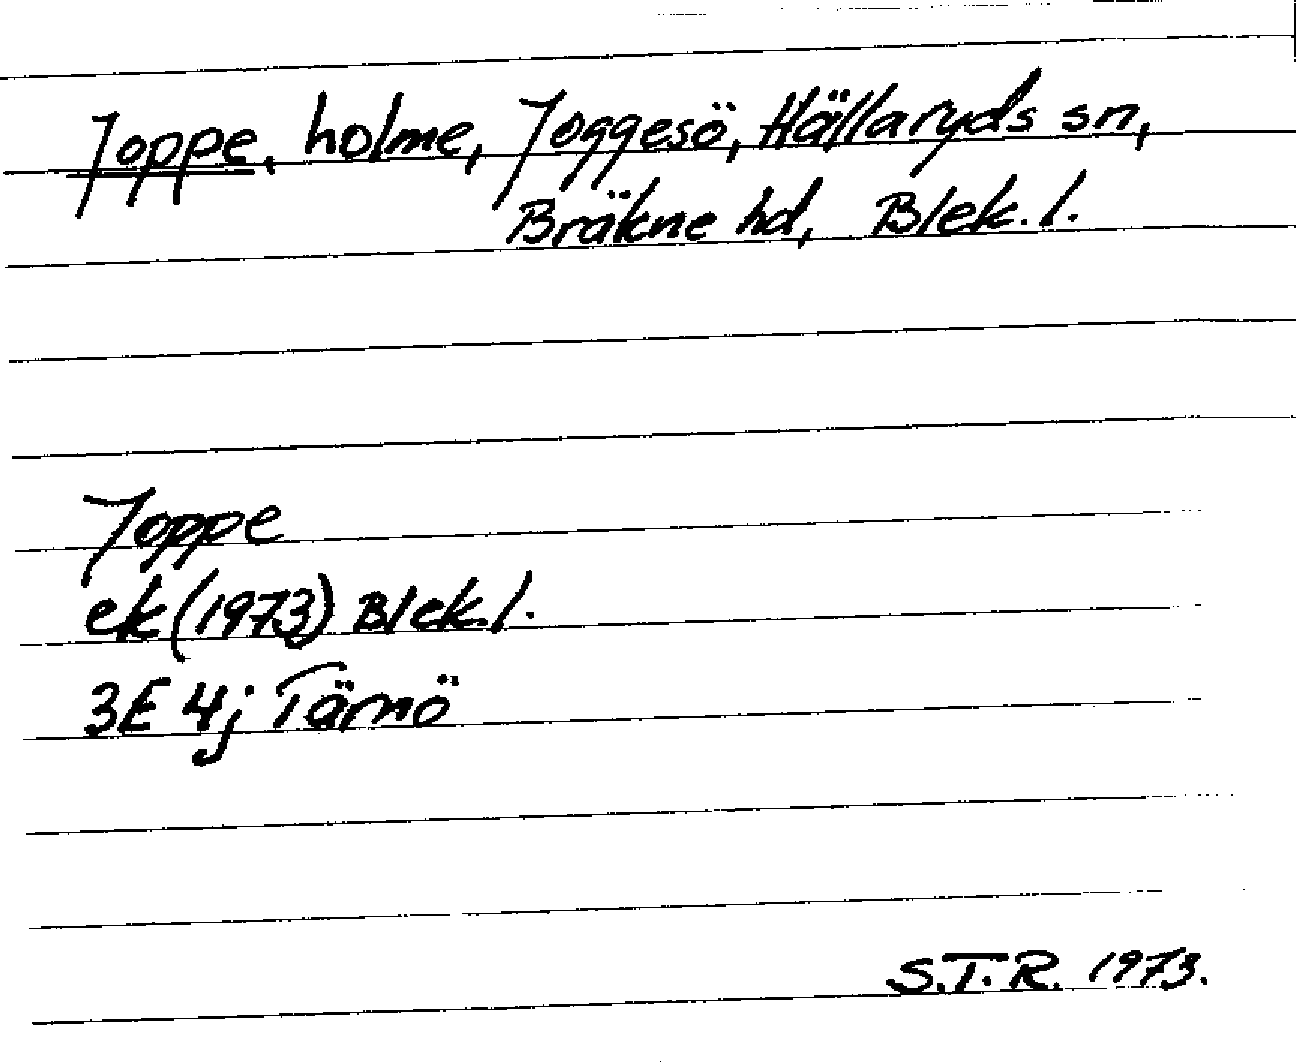 Joppe, holme, Joggesö, Hällaryds sn,
Bräkne hd, Blek. l.
Joppe
ek (1973) Blek. l.
3E 4j Tärnö
S.T.R. 1973.